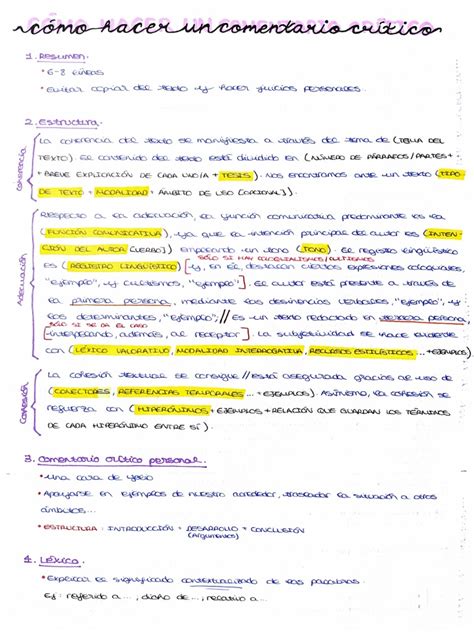 cómo hacer un comentario crítico
1. Resumen.
• 6-8 líneas
• Evitar copiar del texto y hacer juicios personales.
2. Estructura.
Coherencia
La coherencia del texto se manifiesta a través del tema de (TEMA DEL
TEXTO). El contenido del texto está dividido en (NÚMERO DE PÁRRAFOS / PARTES +
+ BREVE EXPLICACIÓN DE CADA UNO/A + TESIS). Nos encontramos ante un texto (TIPO
DE TEXTO + MODALIDAD + ÁMBITO DE USO [OPCIONAL]).
Adecuación
Respecto a la adecuación, la función comunicativa predominante es la
(FUNCIÓN COMUNICATIVA), ya que la intención principal del autor es (INTEN-
CIÓN DEL AUTOR [VERBO]) empleando un tono (TONO). El registro lingüístico
SÓLO SI HAY COLOQUIALISMOS/CULTISMOS
es (REGISTRO LINGÜÍSTICO) [y, en él, destacan ciertas expresiones coloquiales,
"ejemplo", y cultismos, "ejemplo"]. El autor está presente a través de
la primera persona, mediante las desinencias verbales, "ejemplo", y
los determinantes, "ejemplo". // Es un texto redactado en tercera persona,
SÓLO SI SE DA EL CASO
[interpelando, además, al receptor]. La subjetividad se hace evidente
con (LÉXICO VALORATIVO, MODALIDAD INTERROGATIVA, RECURSOS ESTILÍSTICOS ... + EJEMPLOS).
Cohesión
La cohesión textual se consigue // está asegurada gracias al uso de
(CONECTORES, REFERENCIAS TEMPORALES ... + EJEMPLOS). Asimismo, la cohesión se
refuerza con (HIPERÓNIMOS + EJEMPLOS + RELACIÓN QUE GUARDAN LOS TÉRMINOS
DE CADA HIPERÓNIMO ENTRE SÍ).
3. Comentario crítico personal.
• Una cara de folio
• Apoyarse en ejemplos de nuestro alrededor, trasladar la situación a otros
ámbitos...
• ESTRUCTURA: INTRODUCCIÓN + DESARROLLO + CONCLUSIÓN
(Argumentos)
4. Léxico.
• Explicar el significado contextualizado de las palabras.
Ej: referido a..., dicho de..., relativo a...